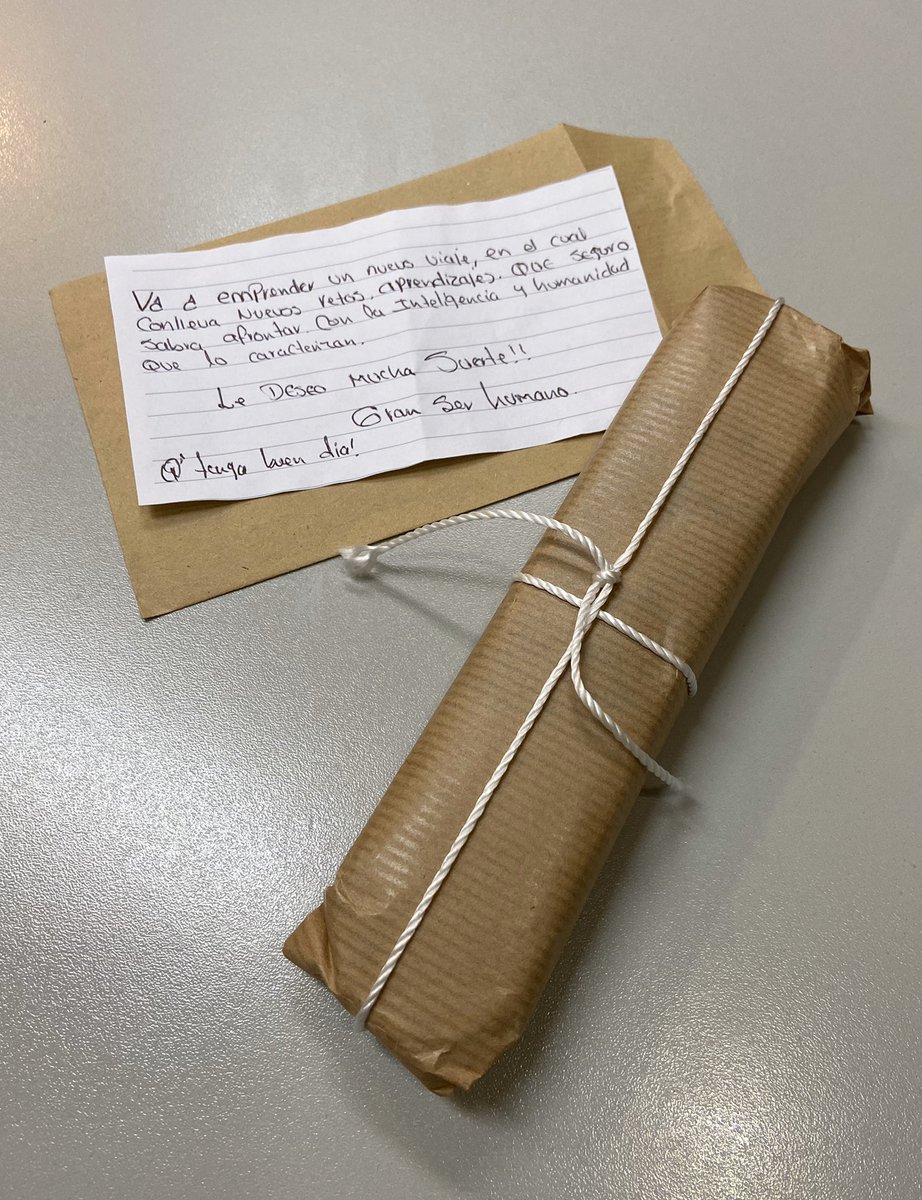 Va a emprender un nuevo viaje, en el cual
conlleva nuevos retos, aprendizajes. Que seguro
sabra afrontar con la Inteligencia y humanidad
Que lo caracterizan.
Le Deseo Mucha Suerte!!
Gran Ser humano.
Q' tenga buen dia!